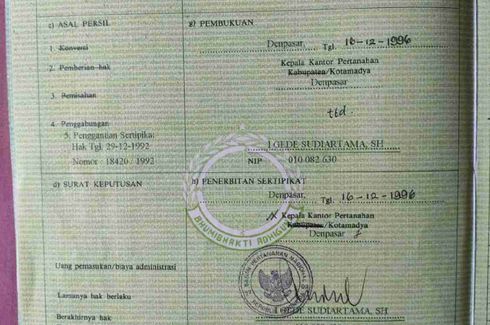 c) ASAL PERSIL
1. Konversi
2. Pemberian hak
3. Pemisahan
4. Penggabungan
5. Penggantian Sertipika:
Hak Tgl. 29-12-1992
Nomor : 18420 / 1992
g) PEMBUKUAN
Denpasar, Tgl. 16-12-1996
Kepala Kantor Pertanahan
Kabupaten/Kotamadya
Denpasar
ttd.
I GEDE SUDIARTAMA, SH
NIP 010 082 630
d) SURAT KEPUTUSAN
Uang pemasukan/biaya administrasi
Lamanya hak berlaku
Berakhirnya hak
h) PENERBITAN SERTIPIKAT
Denpasar, Tgl. 16-12-1996
Kepala Kantor Pertanahan
Kabupaten/Kotamadya
Denpasar
BHUMIBHAKTI ADHIGUNA
BADAN PERTANAHAN NASIONAL
I GEDE SUDIARTAMA, SH